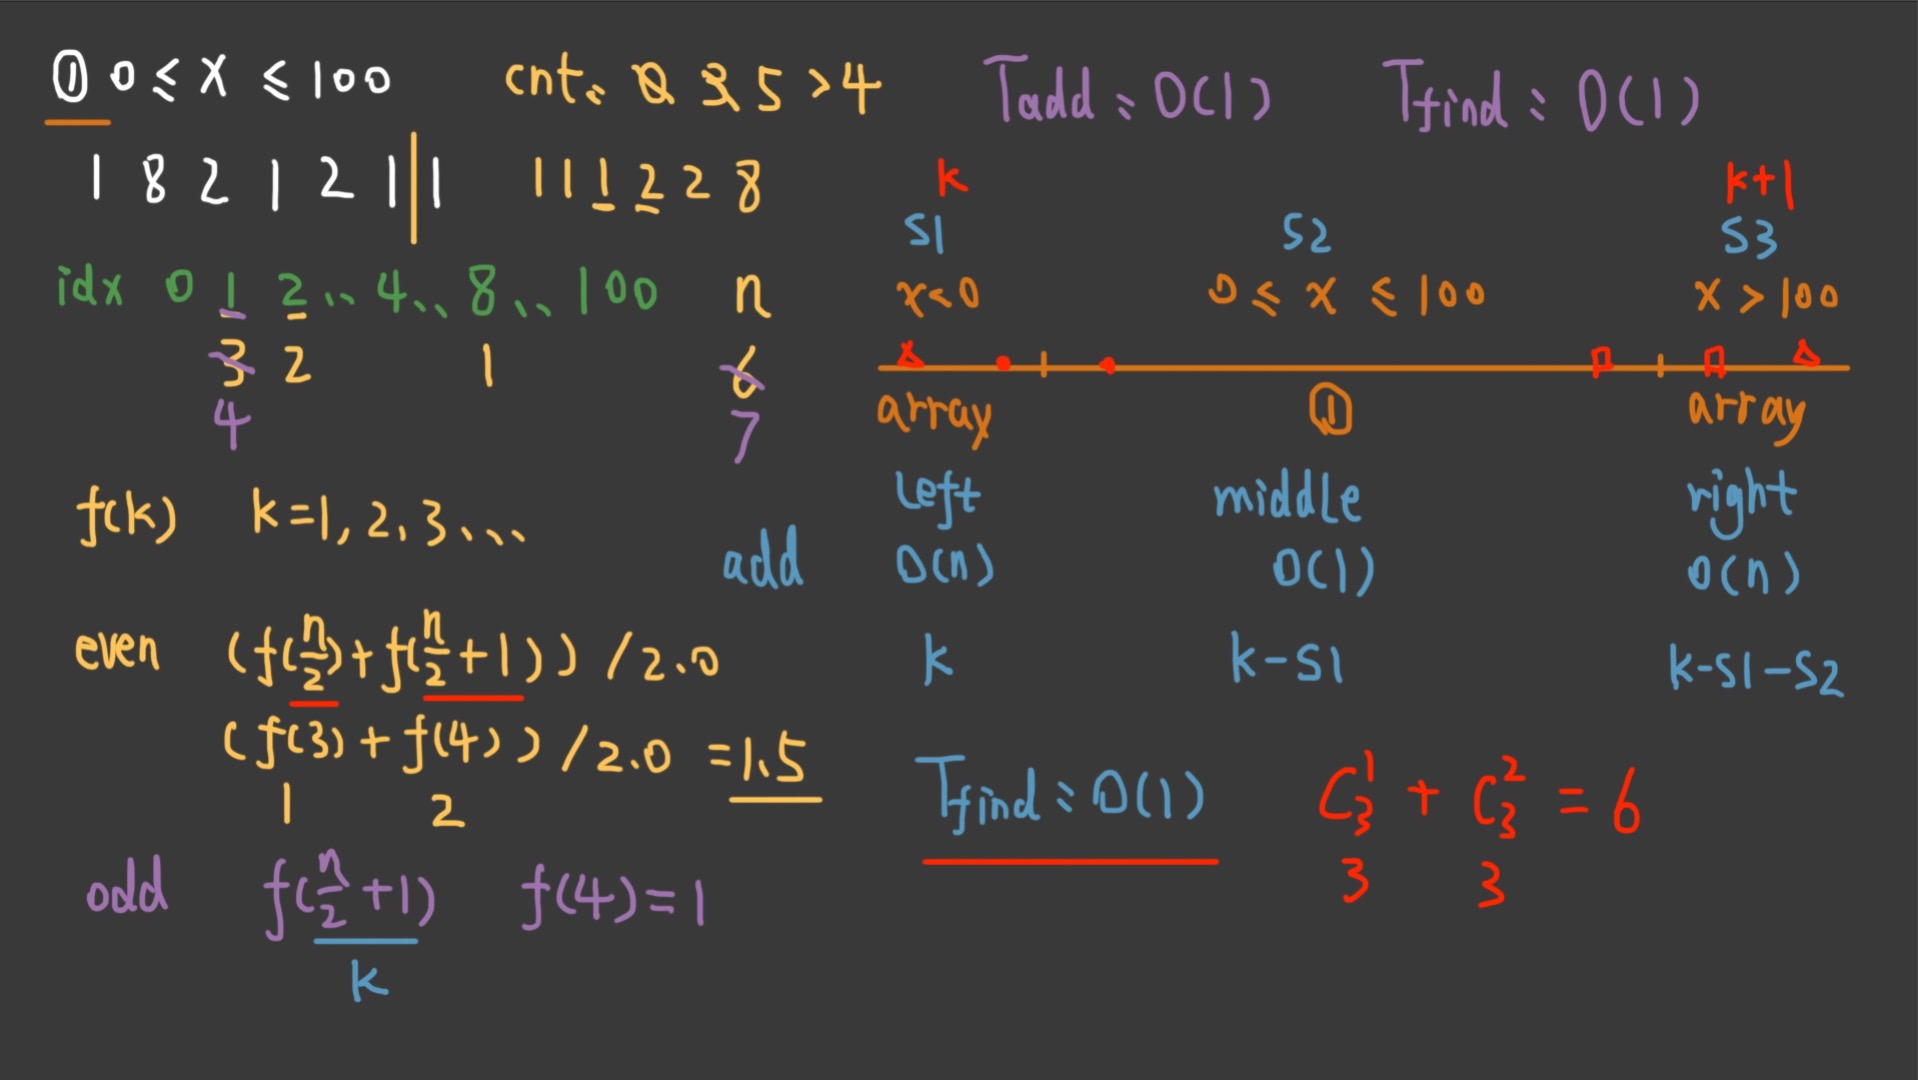 ① 0 ≤ x ≤ 100
cnt: 0 3 5 > 4
1 8 2 1 2 1 | 1
1 1 1 2 2 8
idx 0 1 2 .. 4 .. 8 .. 100 n
3 2 1 6
4 7
f(k) k=1, 2, 3, ...
even (f(n/2)+f(n/2+1)) / 2.0
(f(3)+f(4)) / 2.0 = 1.5
1 2
odd f(n/2+1) f(4)=1
k
Tadd: O(1) Tfind: O(1)
k k+1
S1 S2 S3
x<0 0 ≤ x ≤ 100 x > 100
array ① array
left middle right
add O(n) O(1) O(n)
k k-S1 k-S1-S2
Tfind: O(1)
C₃¹ + C₃² = 6
3 3